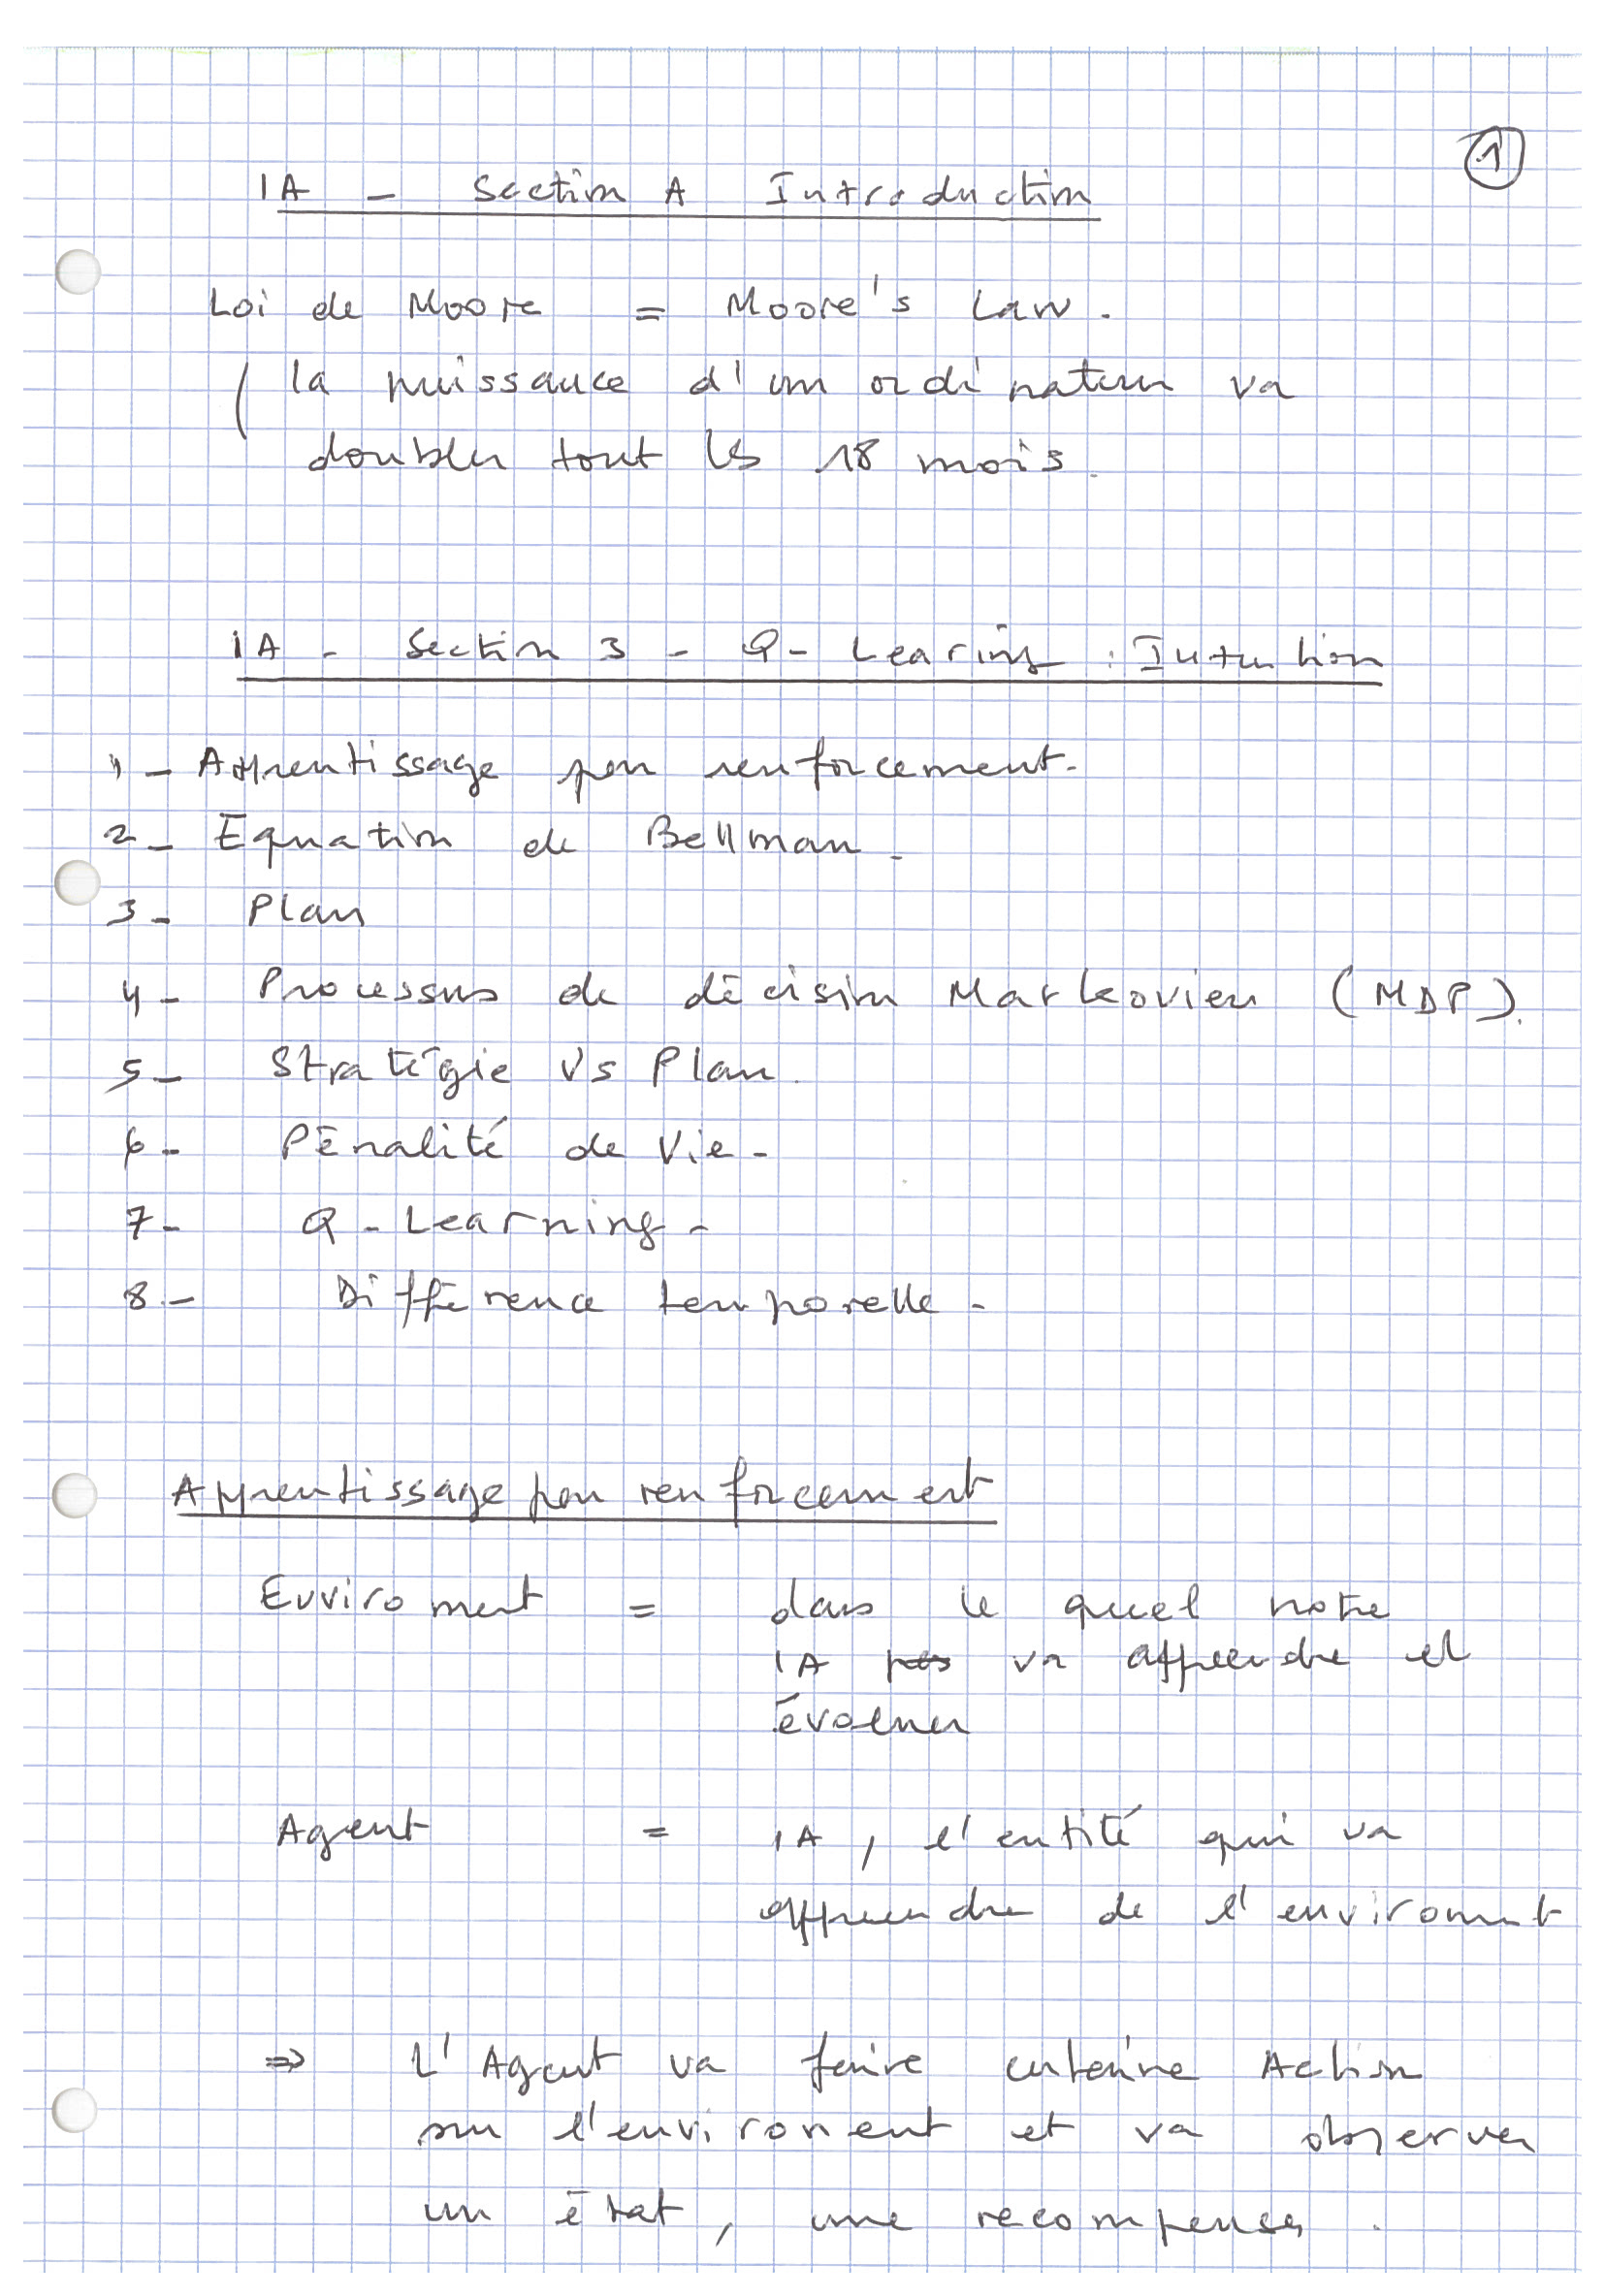 1
IA - Section A Introduction
Loi de Moore = Moore's Law.
( la puissance d'un ordinateur va
doubler tout les 18 mois.
IA - Section 3 - Q-Learing : Intuition
1- Apprentissage par renforcement.
2- Equation de Bellman.
3- Plan
4- Processus de décision Markovien (MDP).
5- Stratégie Vs Plan.
6- Pénalité de Vie.
7- Q-Learning.
8- Différence temporelle.
Apprentissage par renforcement
Enviroment = dans le quel notre
IA va apprendre et
évoluer
Agent = IA, l'entité qui va
apprendre de l'enviroment
⇒ L'Agent va faire certaine Action
sur l'environent et va observer
un état, une recompense.